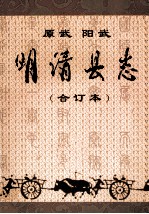 原武 阳武
明清县志
(合订本)